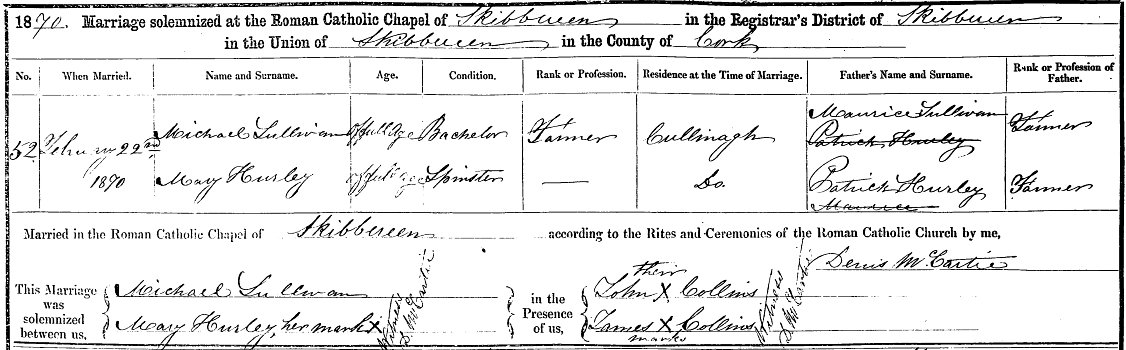 1870. Marriage solemnized at the Roman Catholic Chapel of Skibbereen in the Registrar's District of Skibbereen
in the Union of Skibbereen in the County of Cork
No. When Married. Name and Surname. Age. Condition. Rank or Profession. Residence at the Time of Marriage. Father's Name and Surname. Rank or Profession of Father.
52 February 22nd 1870 Michael Sullivan of full age Bachelor Farmer Cullinagh Maurice Sullivan Patrick Hurley Farmer
Mary Hurley of full age Spinster — Do. Patrick Hurley Maurice Farmer
Married in the Roman Catholic Chapel of Skibbereen according to the Rites and Ceremonies of the Roman Catholic Church by me,
Denis McCartie
This Marriage was solemnized between us,
Michael Sullivan
Mary Hurley, her mark X
Witness D. McCartie
in the Presence of us,
their
John X Collins
James X Collins
marks
Witness D. McCartie